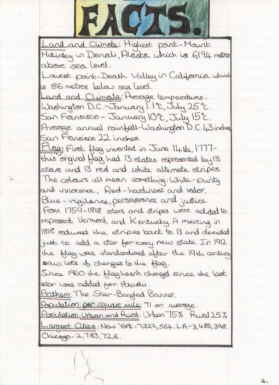 FACTS.
Land and Climate: Highest point - Mount
McKinley in Denali, Alaska which is 6194 metres
above sea level.
Lowest point - Death Valley in California which
is 86 metres below sea level.
Land and Climate: Average temperature -
Washington D.C - January 1.1°C, July 25°C
San Francisco - January 10°C, July 15°C.
Average annual rainfall - Washington D.C 43 inches
San Francisco 22 inches.
Flag: First flag invented in June 14th, 1777 -
this original flag had 13 stars represented by 13
stars and 13 red and white alternate stripes.
The colours all mean something White - Purity
and innocence, Red - hardiness and valor,
Blue - vigilance, perseverance and justice.
From 1759-1818 stars and stripes were added to
represent Vermont and Kentucky. A meeting in
1818 reduced the stripes back to 13 and decided
just to add a star for every new state. In 1912
the flag was standardised after the 19th century
saw lots of changes to the flag.
Since 1960 the flag hasn't changed since the last
star was added for Hawaii.
Anthem: The Star-Spangled Banner.
Population per square mile: 71 on average.
Population Urban and Rural: Urban 75% Rural 25%
Largest Cities: New York - 7,323,564. LA - 3,485,398
Chicago - 2,783,726.